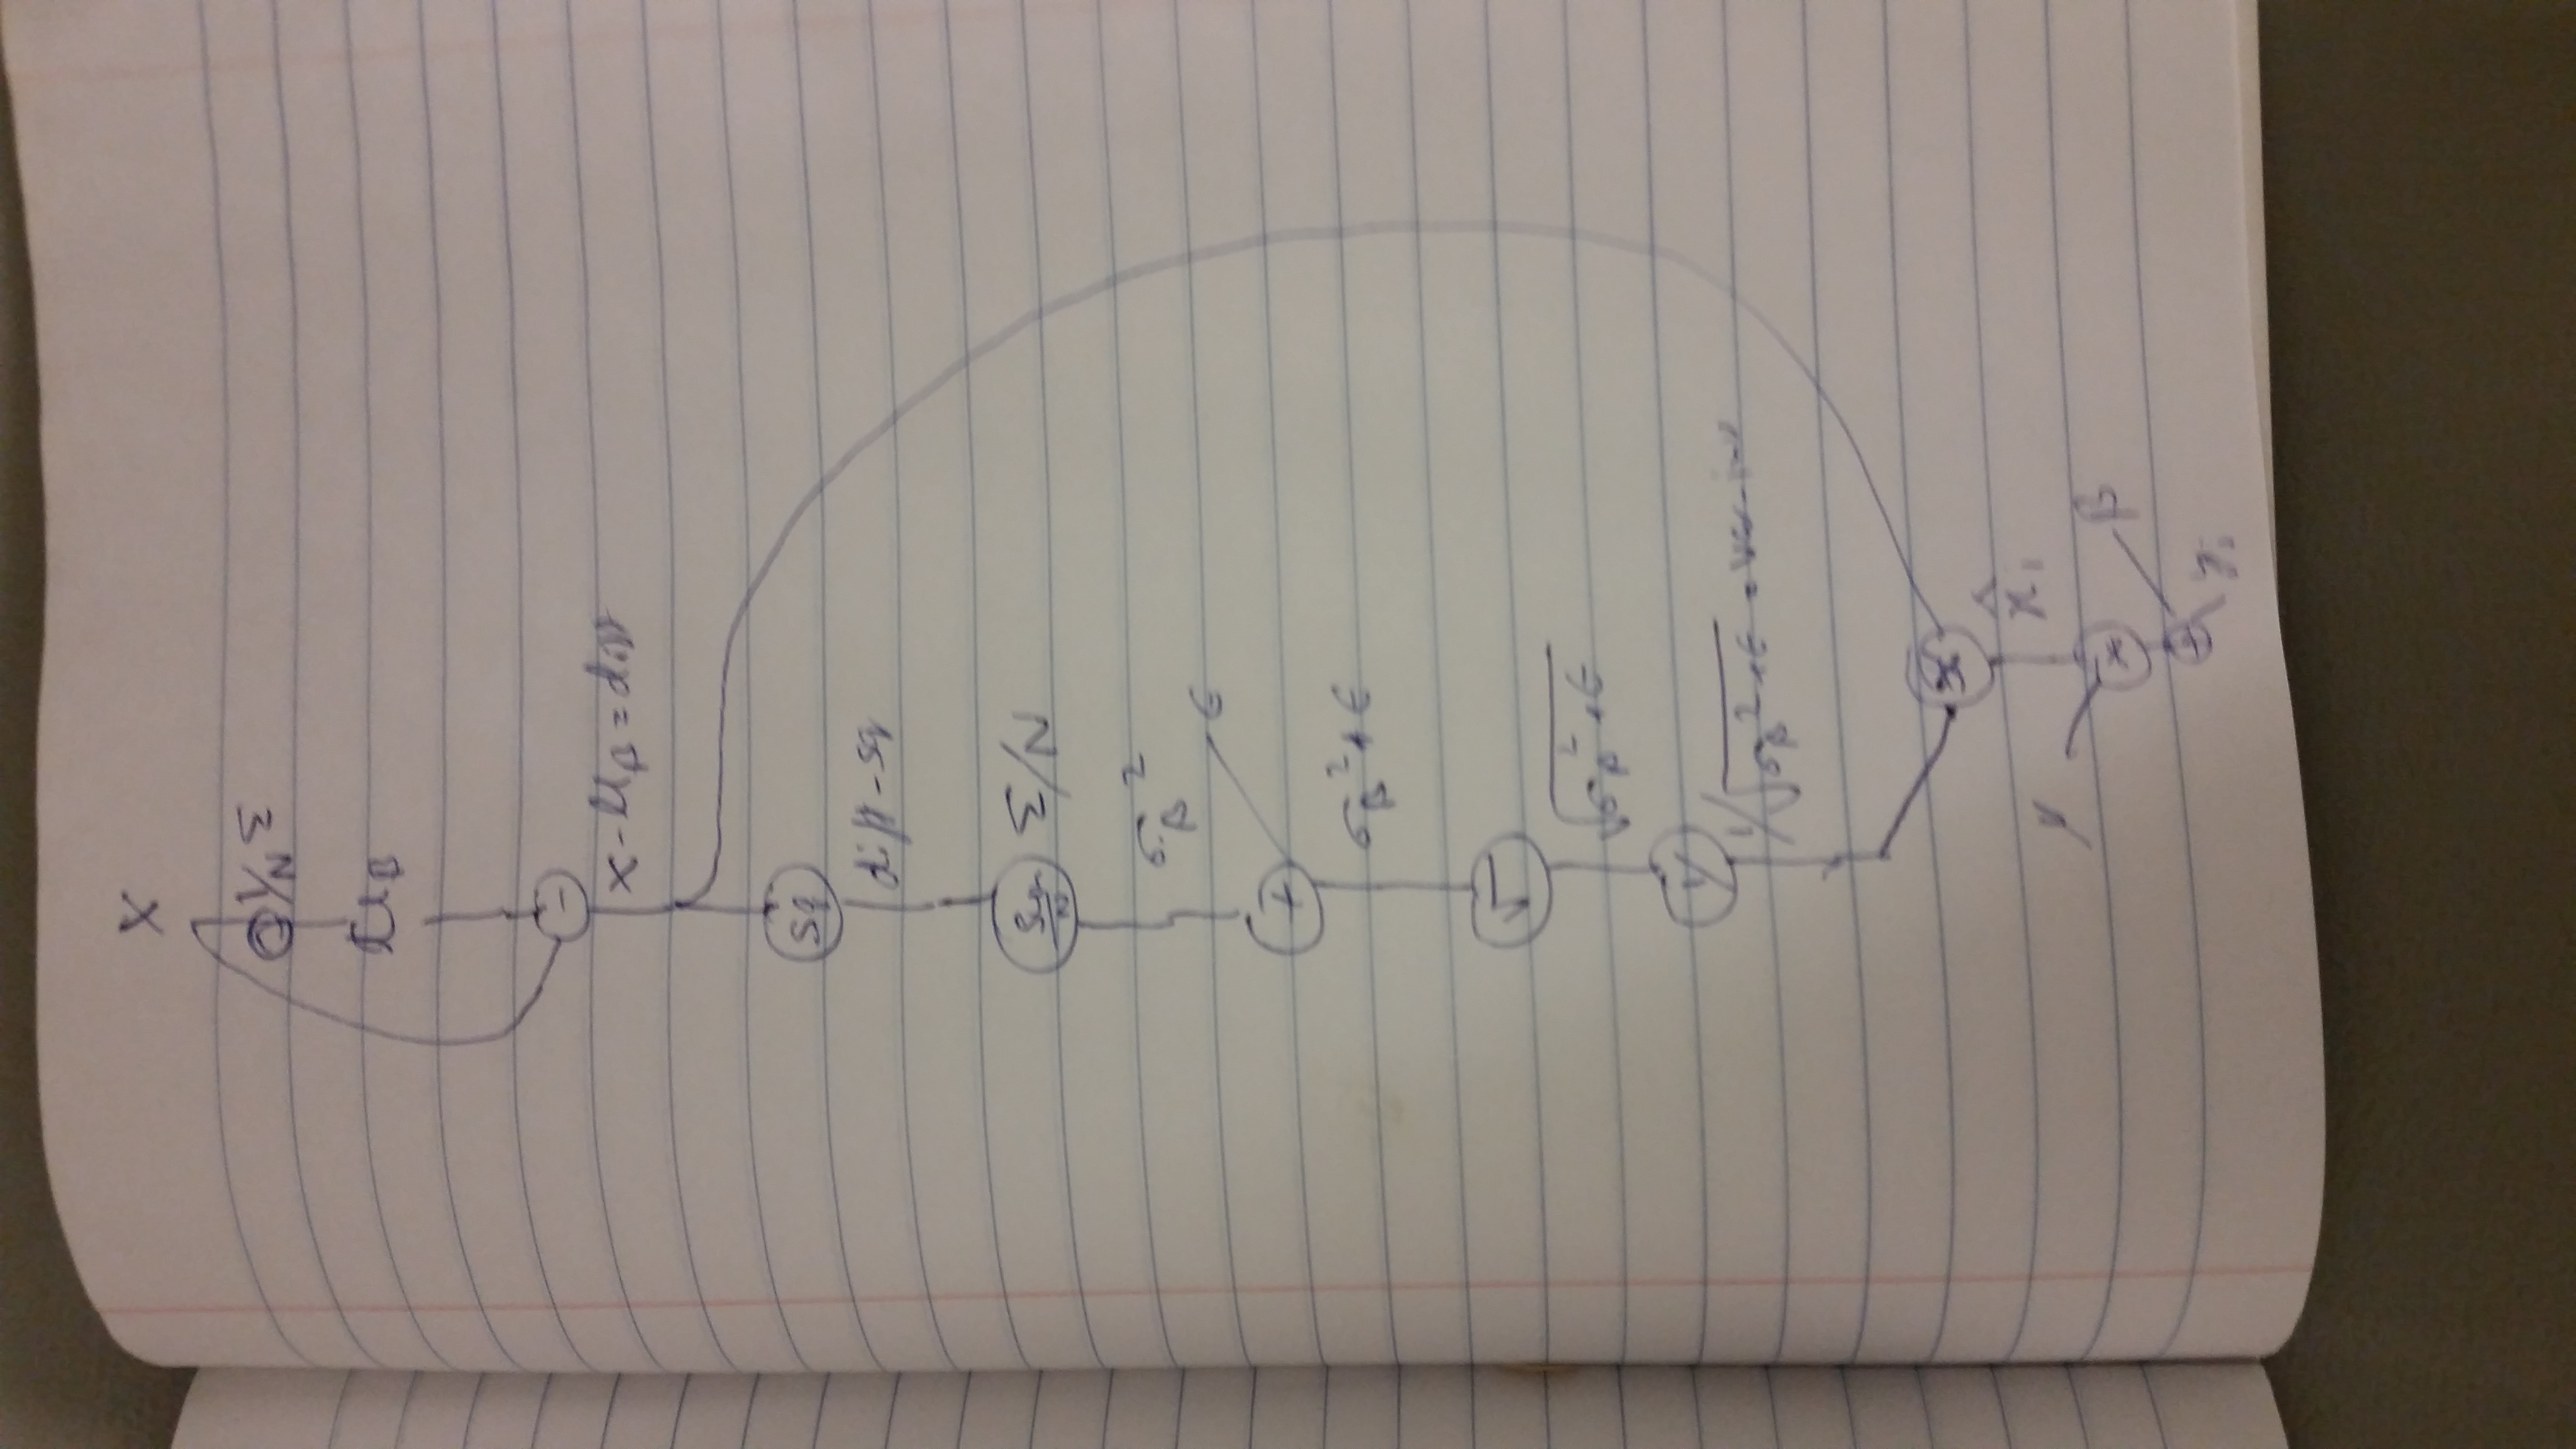 X
1/N Σ
μ_B
−
x - μ_B = diff
sq
diff-sq
Sum/N Σ/N
σ_B²
ε
+
σ_B² + ε
√
√(σ_B² + ε)
1/
1/√(σ_B² + ε) = var-inv
x̂ᵢ
γ
*
β
+
yᵢ